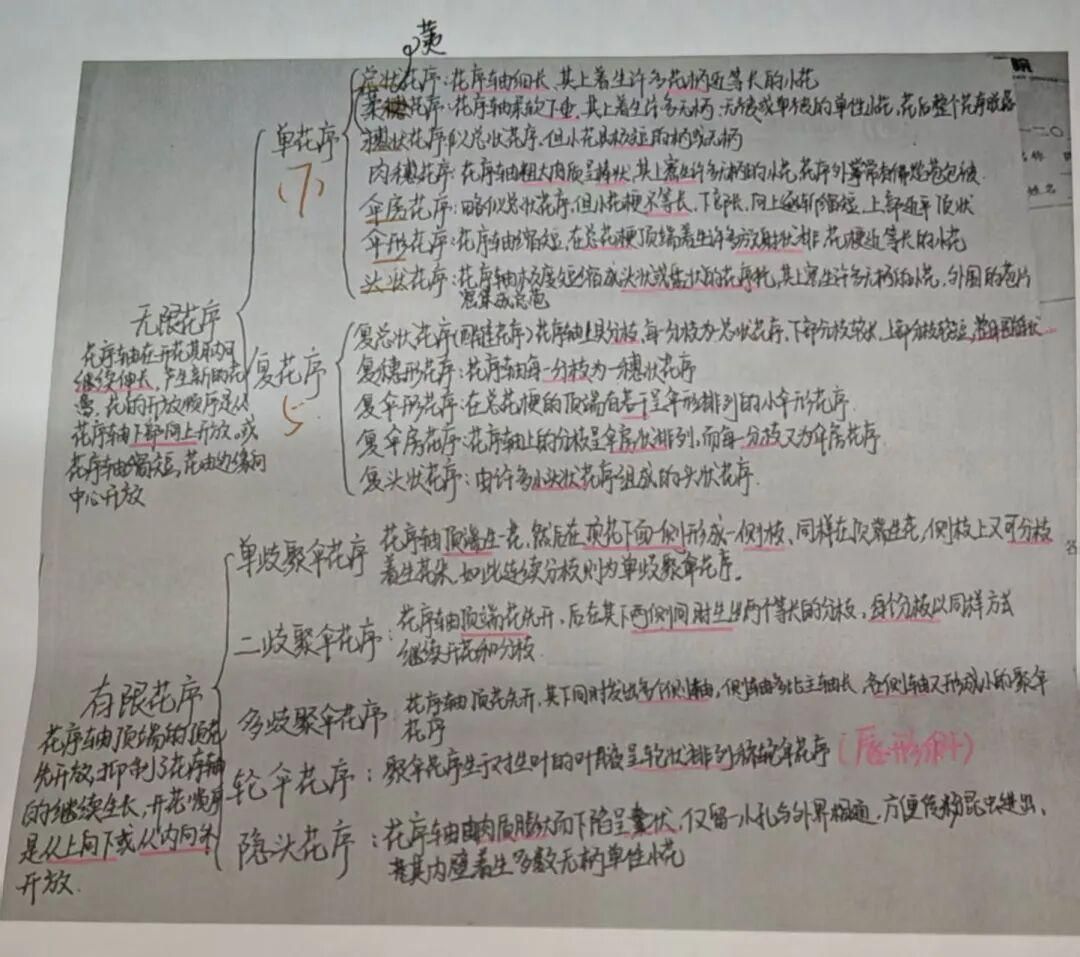 荑
总状花序:花序轴细长,其上着生许多花柄近等长的小花
花序:花序轴柔软下垂,其上着生许多无柄、无被或单被的单性小花,花后整个花序
穗状花序:似总状花序,但小花具极短的柄或无柄
单花序
(7)
肉穗花序:花序轴粗大肉质呈棒状,其上密生许多无柄的小花,花序外常常有佛焰苞包被.
伞房花序:略似总状花序,但小花梗不等长,下部长,向上逐渐缩短,上部近平顶状
伞形花序:花序轴缩短,在总花梗顶端着生许多放射状排 花梗近等长的小花
头状花序:花序轴极度短缩成头状或盘状的花序托,其上密生许多无柄的小花,外围的苞片
密集成总苞
无限花序
花序轴在开花其期内可
继续伸长,产生新的花
蕾,花的开放顺序是从
花序轴下部向上开放。或
花序轴缩短,花由边缘向
中心开放
复花序
5
复总状花序(圆锥花序)花序轴上具分枝,每一分枝为总状花序,下部分枝较长,上部分枝较短,
复穗形花序:花序轴每一分枝为一穗状花序
复伞形花序:在总花梗的顶端有若干呈伞形排列的小伞形花序.
复伞房花序:花序轴上的分枝呈伞房状排列,而每一分枝又为伞房花序
复头状花序:由许多小头状花序组成的头状花序.
单歧聚伞花序
花序轴顶端生一花,然后在顶花下面一侧形成一侧枝、同样在顶端生花,侧枝上又可分枝
着生花朵,如此连续分枝则为单歧聚伞花序。
二歧聚伞花序:
花序轴顶端花先开,后在其下两侧同时生出两个等长的分枝,每个分枝以同样方式
继续开花和分枝.
有限花序
花序轴顶端的顶花
先开放,抑制了花序轴
的继续生长,开花顺序
是从上向下或从内向外
开放.
多歧聚伞花序:
花序轴顶花先开,其下同时发出多个侧轴,侧轴多比主轴长,各侧轴又形成小的聚伞
花序
轮伞花序:聚伞花序生于对生叶的叶腋呈轮状排列称轮伞花序(唇形科)
隐头花序:花序轴由肉质膨大而下陷呈囊状,仅留一小孔与外界相通,方便传粉昆虫进出,
其内壁着生多数无柄单性小花
姓名